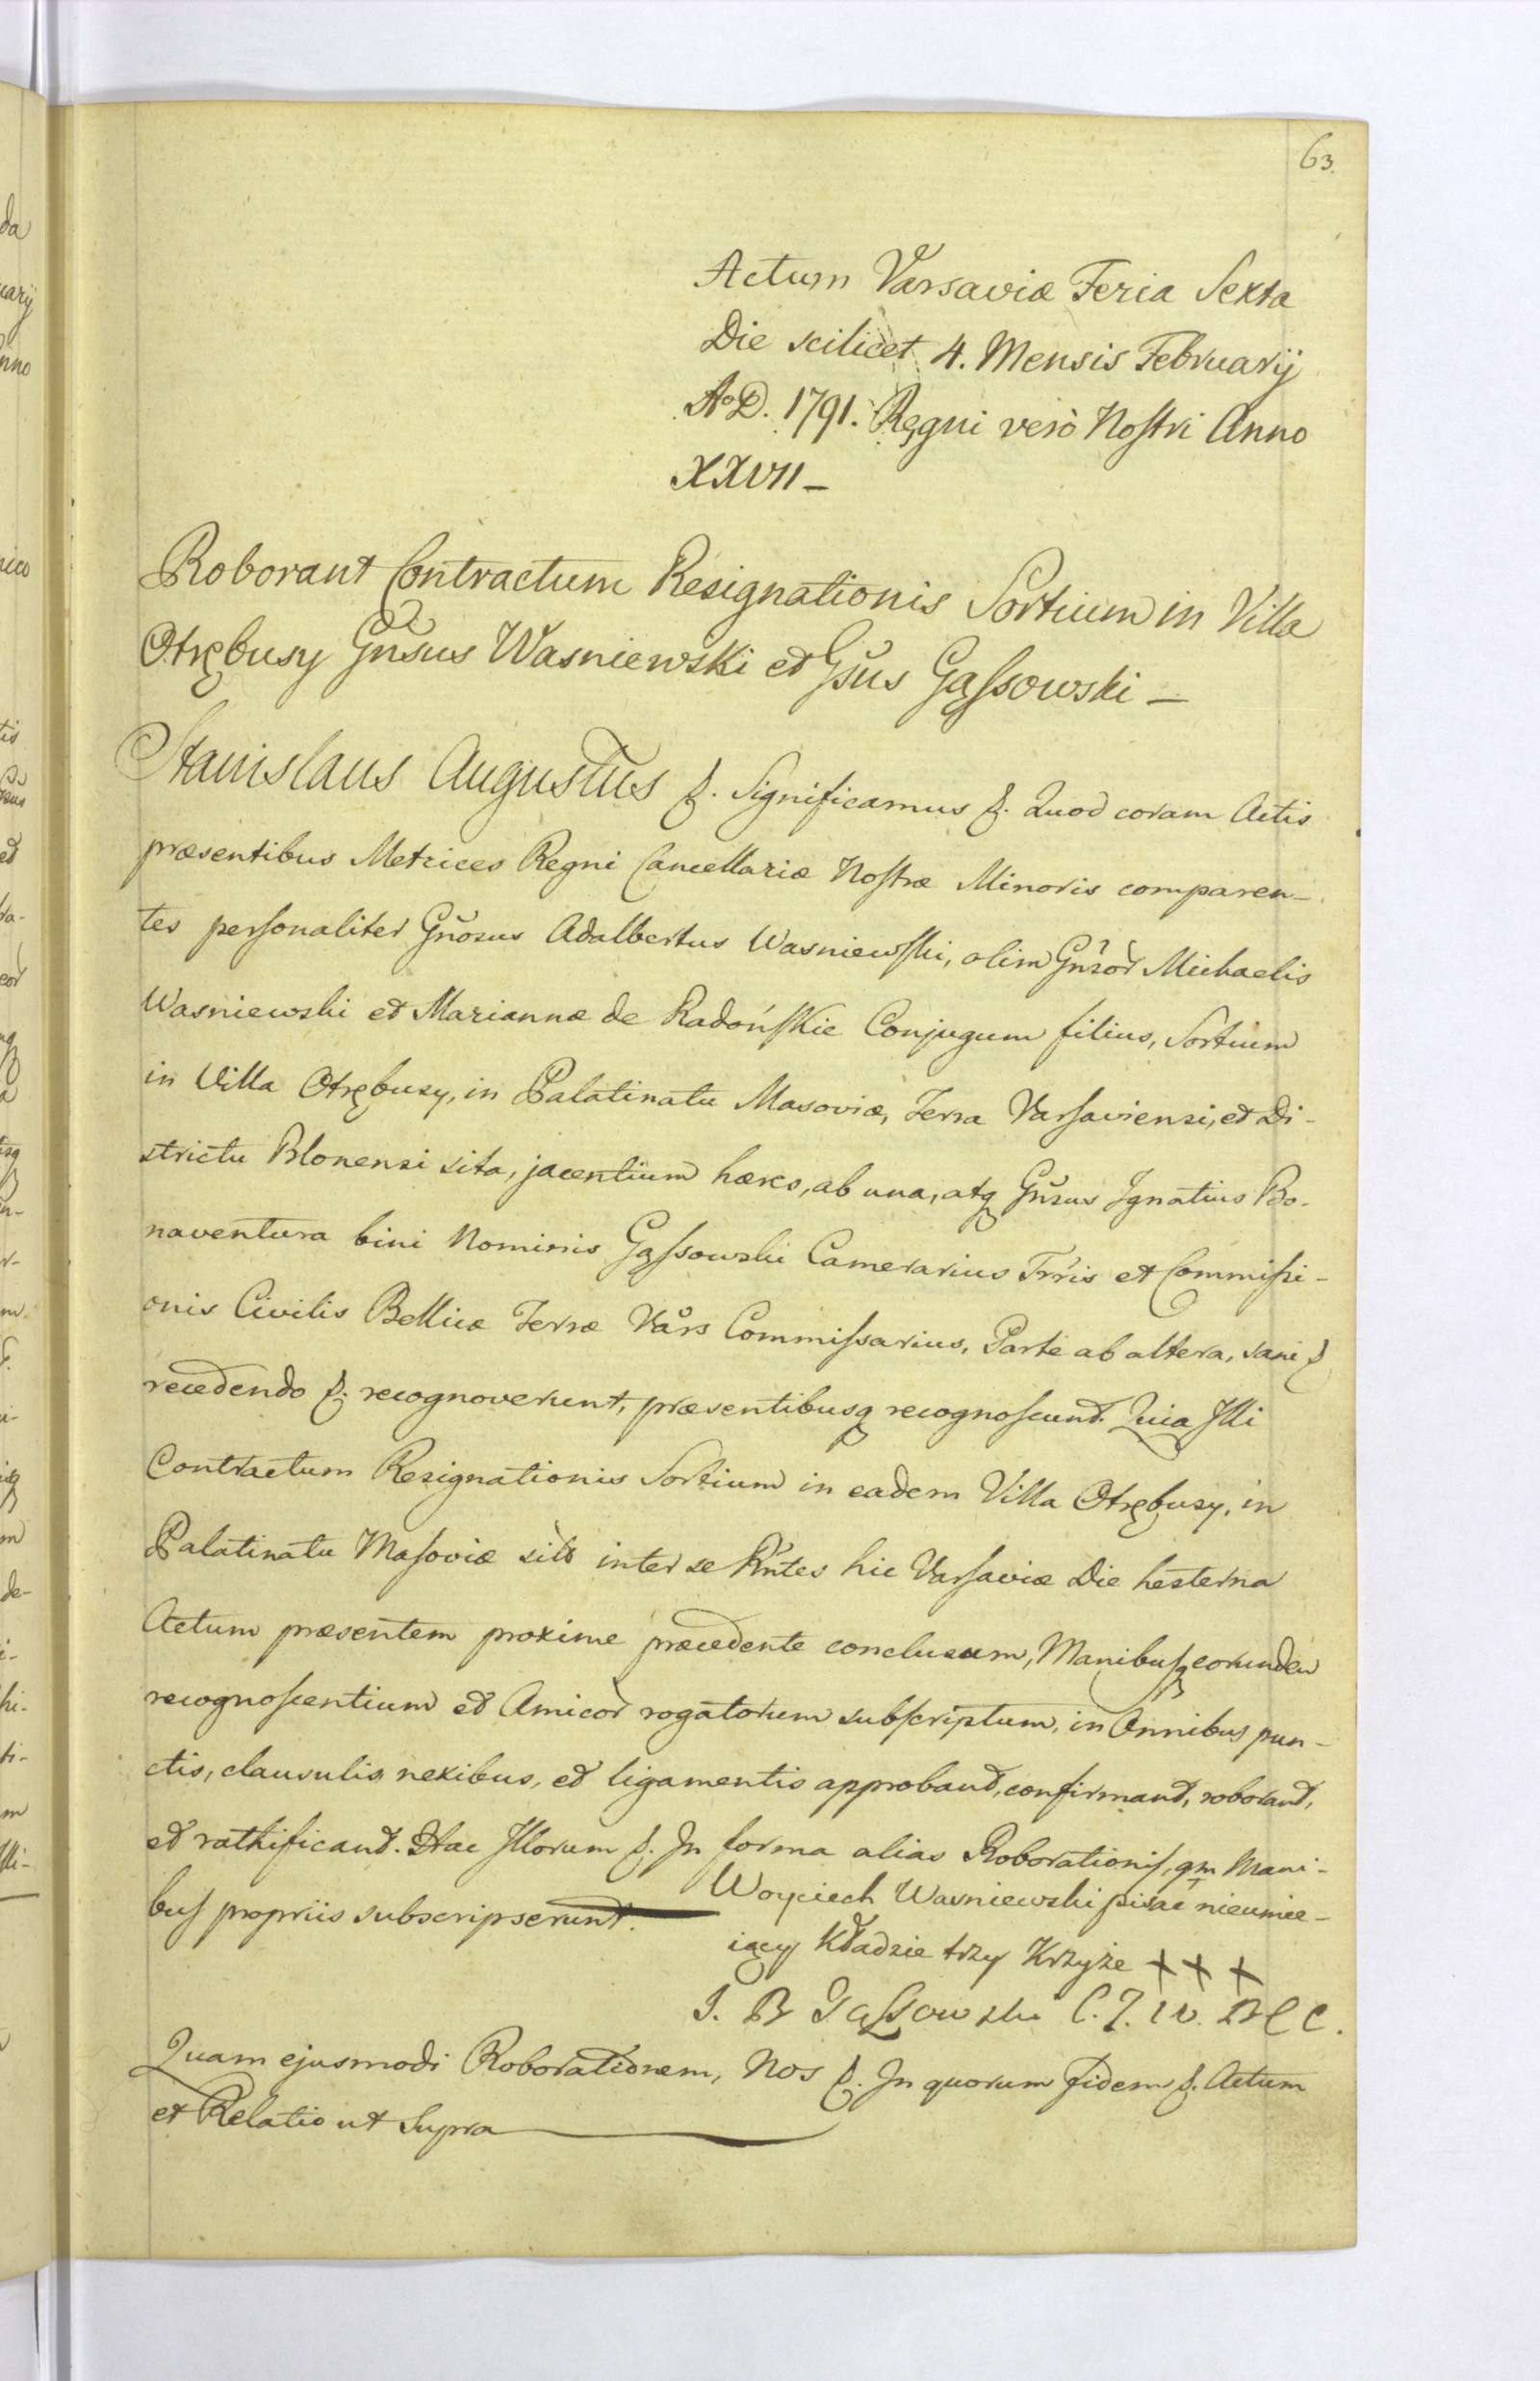 63.
Actum Varsaviæ Feria Sexta
Die scilicet 4. Mensis Februarij
AoD. 1791. Regni verò Nostri Anno
XXVII _
Roborant Contractum Resignationis Sortium in Villa
Otrębusy Gnsus Wasniewski et Gsus Gąssowski _
Stanislaus Augustus &. Significamus &. Quod coram Actis
præsentibus Metrices Regni Cancellariæ Nostræ Minoris comparen-
tes personaliter Gnosus Adalbertus Wasniewski, olim Gnsor Michaelis
Wasniewski et Mariannæ de Radońskie Conjugum filius, Sortium
in Villa Otrębusy, in Palatinatu Masoviæ, Terra Varsaviensi, et Di-
strictu Blonensi sita, jacentium hæres, ab una, atq Gnsus Ignatius Bo-
naventura bini Nominis Gąssowski Camerarius Trris et Commissi-
onis Civilis Bellicæ Terræ Vars Commissarius, Parte ab altera, sani &
recedendo &. recognoverunt, præsentibusq recognoscunt. Quia Illi
Contractum Resignationis Sortium in eadem Villa Otrębusy, in
Palatinatu Masoviæ inter se Rntes hic Varsaviæ Die hesterna
Actum præsentem proxime præcedente conclusum, Manibusq eorundem
recognoscentium et Amicor rogatorum subscriptum, in Omnibus pun-
ctis, clausulis nexibus, et ligamentis approband, confirmand, roborand,
et rathificand. Hac Illorum &. In forma alias Roborationis, qm Mani-
bus propriis subscripserunt.
Woyciech Wasniewski pisać nieumie-
iący kładzie trzy Krzyże + + +
I. B Gąssowski C. Z. W. B C C.
Quam ejusmodi Roborationem, Nos &. In quorum fidem &. Actum
et Relatio ut Supra